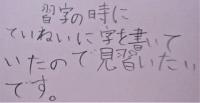 習字の時に
ていねいに字を書いて
いたので見習いたい
です。